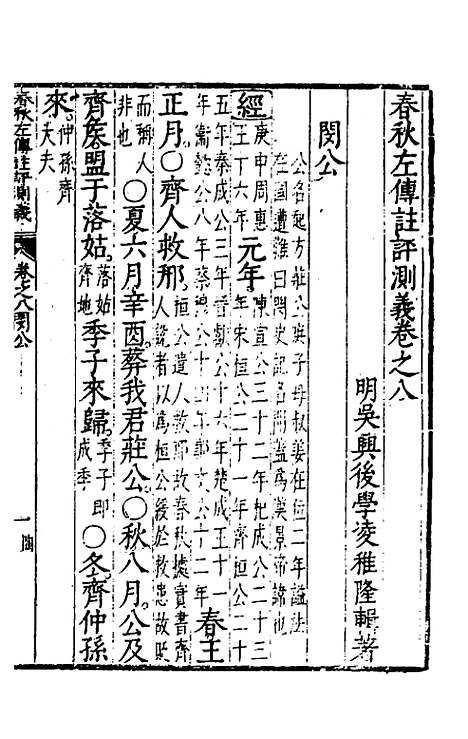 春秋左傳註評測義卷之八
明吳興後學凌稚隆輯著
閔公
公名啟方莊公庶子母叔姜在位二年諡法
在國遭難曰閔史記名開蓋為漢景帝諱也
經
庚申周惠
王十六年
元年
陳宣公三十二年杞成公二十三
年宋桓公二十一年齊桓公二十
五年秦成公三年晉獻公十六年楚成王十一
年衛懿公八年蔡穆公十四年鄭文公十二年
春王
正月〇齊人救邢
桓公遣人救邢故春秋據實書齊
人說者以為桓公緩於救患故貶
而稱人
非也
〇夏六月辛酉葬我君莊公〇秋八月公及
齊侯盟于落姑
落姑
齊地
季子來歸
季子即
成季
〇冬齊仲孫
來
仲孫齊
大夫
春秋左傳註評測義
卷之八閔公
一